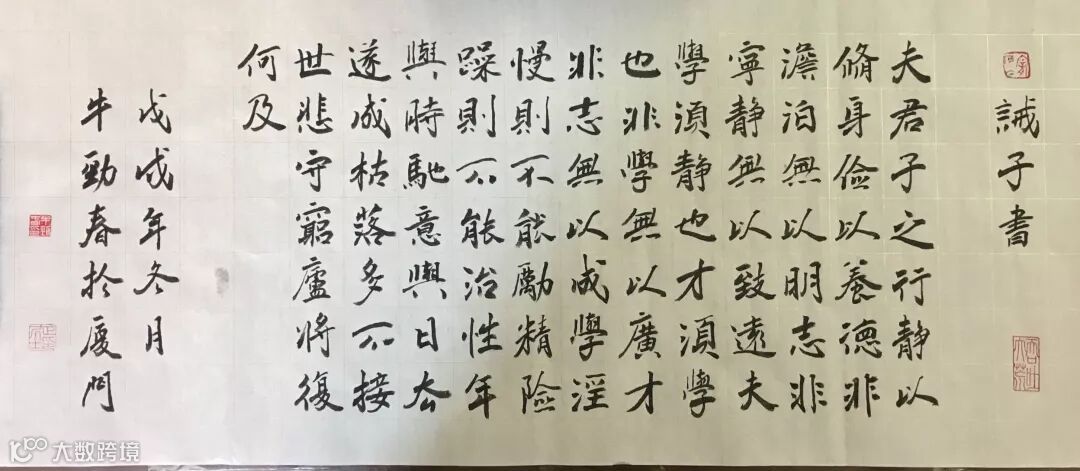 誡子書
夫君子之行静以
脩身俭以養德非
澹泊無以明志非
寧静無以致遠夫
學須静也才須學
也非學無以廣才
非志無以成學淫
慢則不能勵精险
躁則不能治性年
與時馳意與日去
遂成枯落多不接
世悲守窮廬將復
何及
戊戌年冬月
牛勁春於厦門
大数跨境